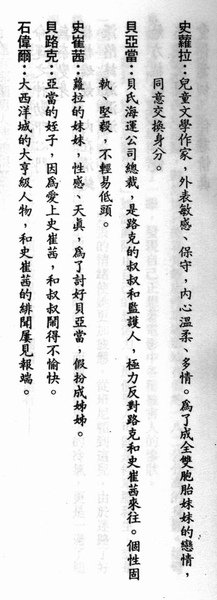 史蘿拉：兒童文學作家，外表敏感、保守，內心溫柔、多情。為了成全雙胞胎妹妹的戀情，
同意交換身分。
貝亞當：貝氏海運公司總裁，是路克的叔叔和監護人，極力反對路克和史崔茜來往。個性固
執、堅毅，不輕易低頭。
史崔茜：蘿拉的妹妹，性感、天真，為了討好貝亞當，假扮成姊姊。
貝路克：亞當的姪子，因為愛上史崔茜，和叔叔鬧得不愉快。
石偉爾：大西洋城的大亨級人物，和史崔茜的緋聞屢見報端。